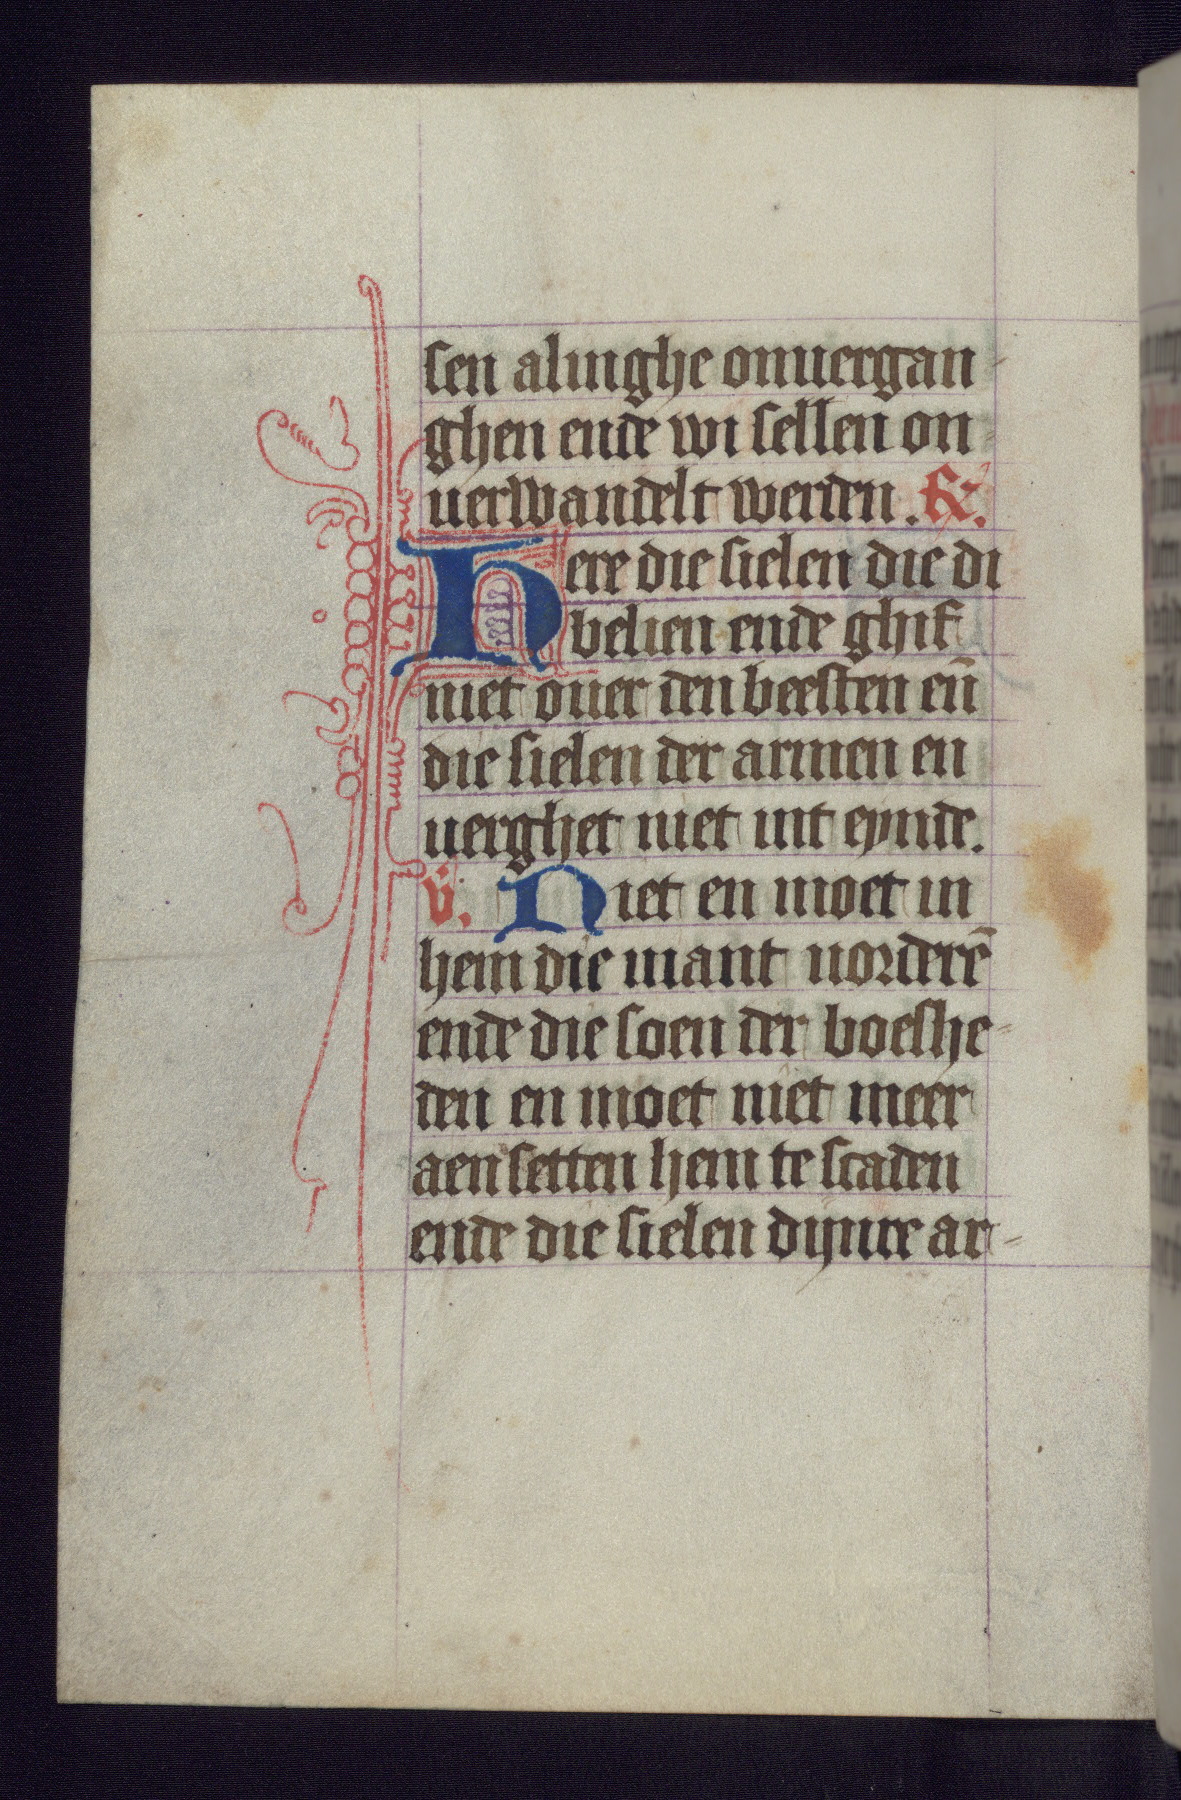 sen alinghe onuergan
ghen ende wi sellen on
uerwandelt werden. R.
Here die sielen die di
belien ende ghif
niet ouer den beesten eñ
die sielen der armen en
uerghet niet int eynde.
v̄. Niet en moet in
hem die uiant uorderē
ende die soen der boeshe-
den en moet niet meer
aensetten hem te scaden
ende die sielen dijnre ar-